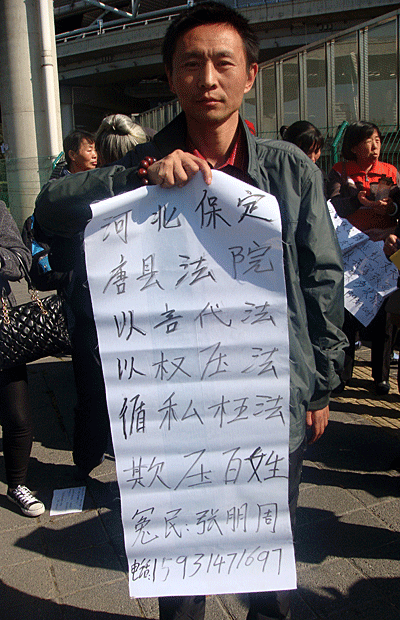 河北保定
唐县法院
以言代法
以权压法
循私枉法
欺压百姓
冤民:张明周
电话:15931471697